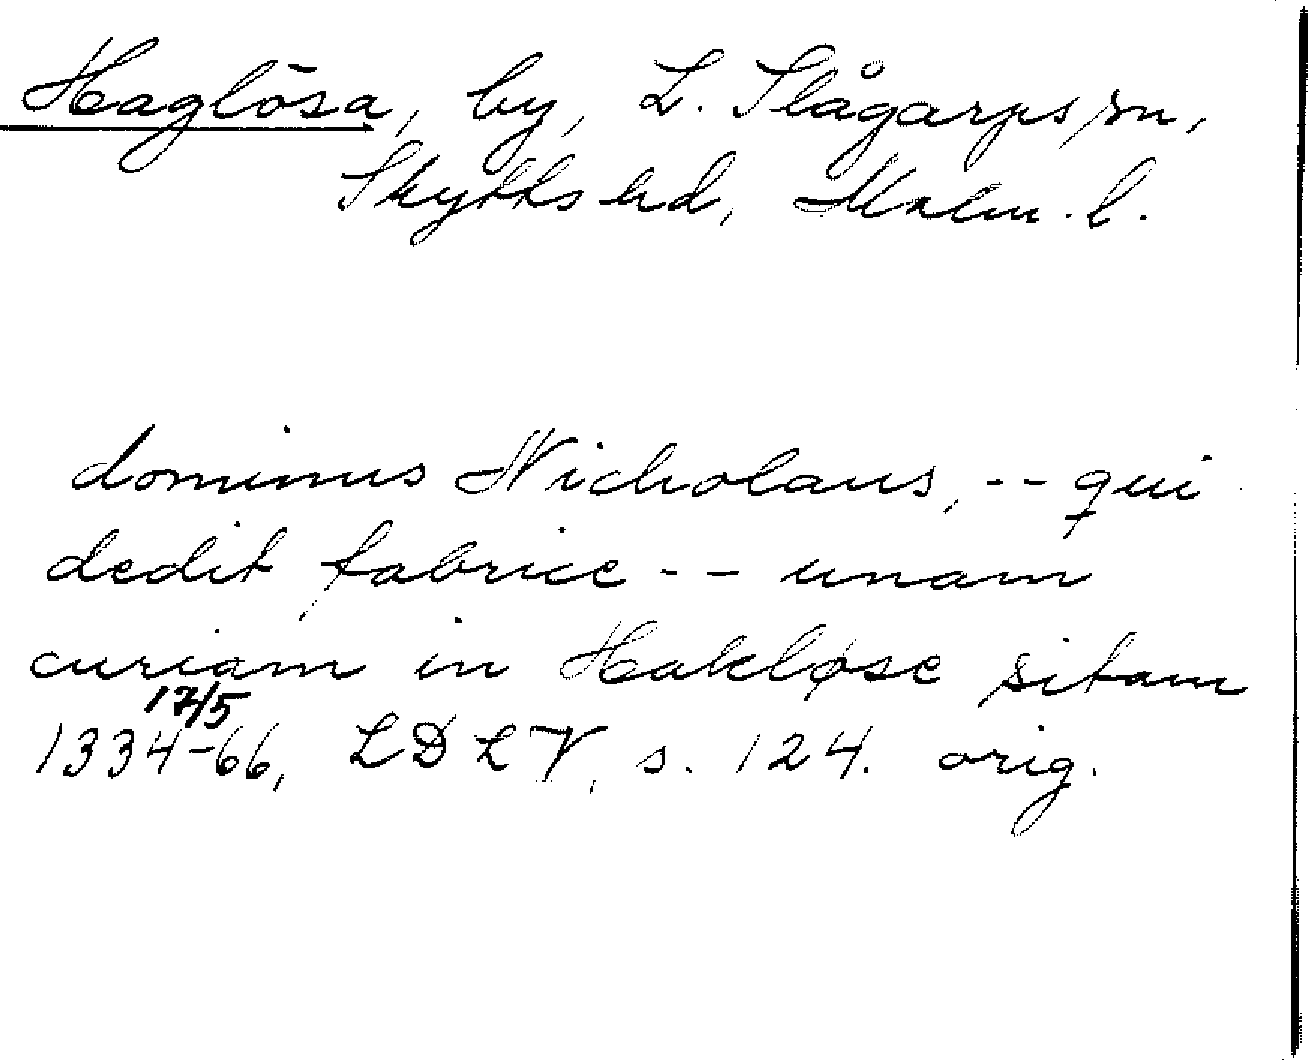 Haglösa, by, L. Slågarps sn,
Skytts hd, Malm. l.
dominus Nicholaus, -- qui
dedit fabrice -- unam
curiam in Hakløse sitam
17/5
1334-66, LDLV, s. 124. orig.